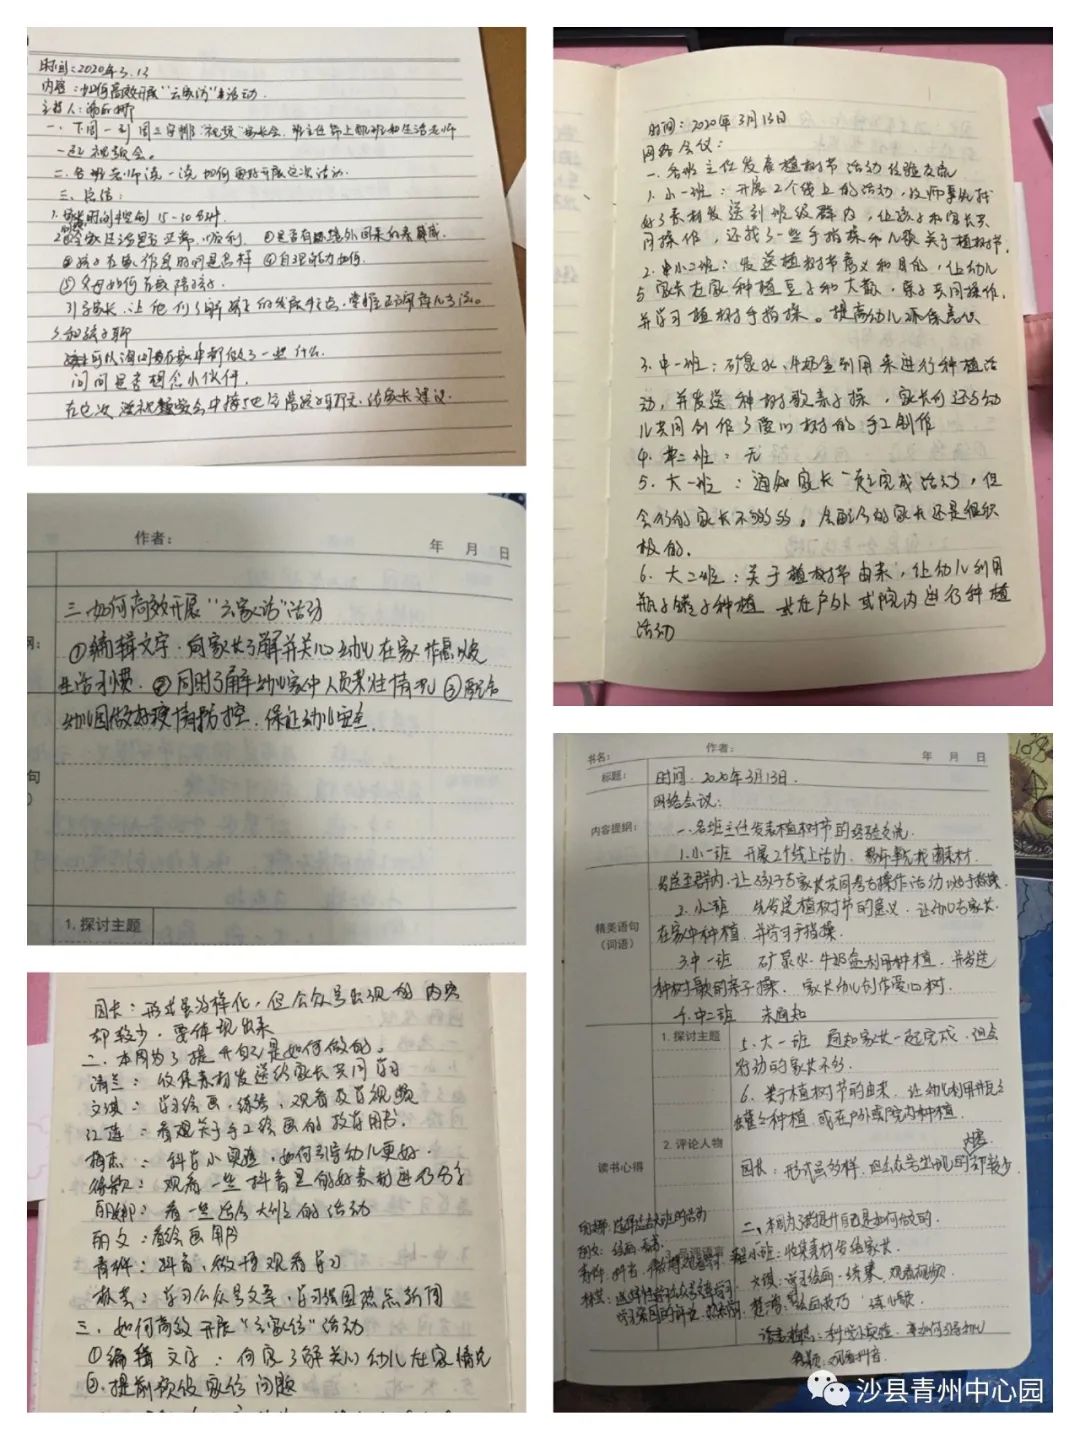 时间:2020年3.13
内容:如何高效开展“云家访”活动.
主持人:
一、下周一到周三安排“视频”家长会,班主任
一起视频会。
二、各班老师说一说如何更好开展这次活动.
三、总结:
1. 时间控制 15-30分钟.
③孩子在家作息时间是怎样 ④自理能力如何.
⑤父母如何高效陪孩子.
3.和孩子聊
可以询问孩在家中都做了一些什么.
问问是否想念小伙伴.
时间:2020年3月13日
网络会议:
一.各班主任发表植树节活动经验交流
1.小一班:开展2个线上的活动,教师事先找
好了素材发送到班级群内,让孩子和家长共
同操作,还找了一些手指操和儿歌关于植树节.
2.小二班:发送植树节意义和目的,让幼儿
与家长在家种植豆子和大蒜,亲子共同操作,
并学习植树手指操。提高幼儿环保意识
3.中一班:矿泉水、牛奶盒利用来进行种植活
动,并发送种树歌亲子操,家长们还与幼
儿共同创作了爱心树的手工制作
4.中二班:无
5.大一班:通知家长一起完成活动,但
参与的家长不够多,会配合的家长还是很积
极的.
6.大二班:关于植树节由来,让幼儿利用
瓶子罐子种植 在户外或院内进行种植
活动
作者: 年 月 日
三.如何高效开展“云家访”活动
①编辑文字.向家长了解并关心幼儿在家作息以及
生活习惯.②同时了解幼儿家中人员来往情况③配合
幼儿园做好疫情防控.保证幼儿安全.
1. 探讨主题
园长:形式多样化,但公众号出现的内容
却较少.要体现出来
二.本周为了提升自己是如何做的。
清兰:收集素材发送给家长共同学习
文淇:学习绘画,练琴,观看教学视频
红莲:看观关于手工绘画的教育用书.
:科学小实验,如何引导幼儿更好.
:观看一些抖音里的好素材进行分享
丽娜:看一些适合大班的活动
丽文:看绘画用书
青婷:抖音,微博观看学习
:学习公众号文章,学习强国热点新闻
三.如何高效开展“云家访”活动
①编辑文字:向家了解关心幼儿在家情况
②.提前预设家访问题
书名: 作者: 年 月 日
标题: 时间:2020年3月13日.
网络会议:
内容提纲: 一.各班主任发表植树节的经验交流.
1.小一班 开展2个线上活动. 事先找素材.
发送至群内.让孩子与家长共同参与操作活动
2.小二班 先发送植树节的意义.让幼儿与家长
精美语句 在家中种植.并学习手指操.
(词语) 3.中一班 矿泉水.牛奶盒利用种植.并发送
种树歌的亲子操. 家长幼儿创作爱心树.
4.中二班 未通知
1. 探讨主题 5.大一班 通知家长一起完成.但参
与活动的家长不多.
6. 关于植树节的由来.让幼儿利用瓶子
罐子种植.或在户外或院内种植.
2. 评论人物
读书心得 园长:形式虽多样.但公众号出现的内容却较少.
二、本周为了提升自己是如何做的.
小班:收集素材发给家长.
文淇:学习绘画.练琴.观看视频.
:科学小实验.
:观看抖音.
沙县青州中心园